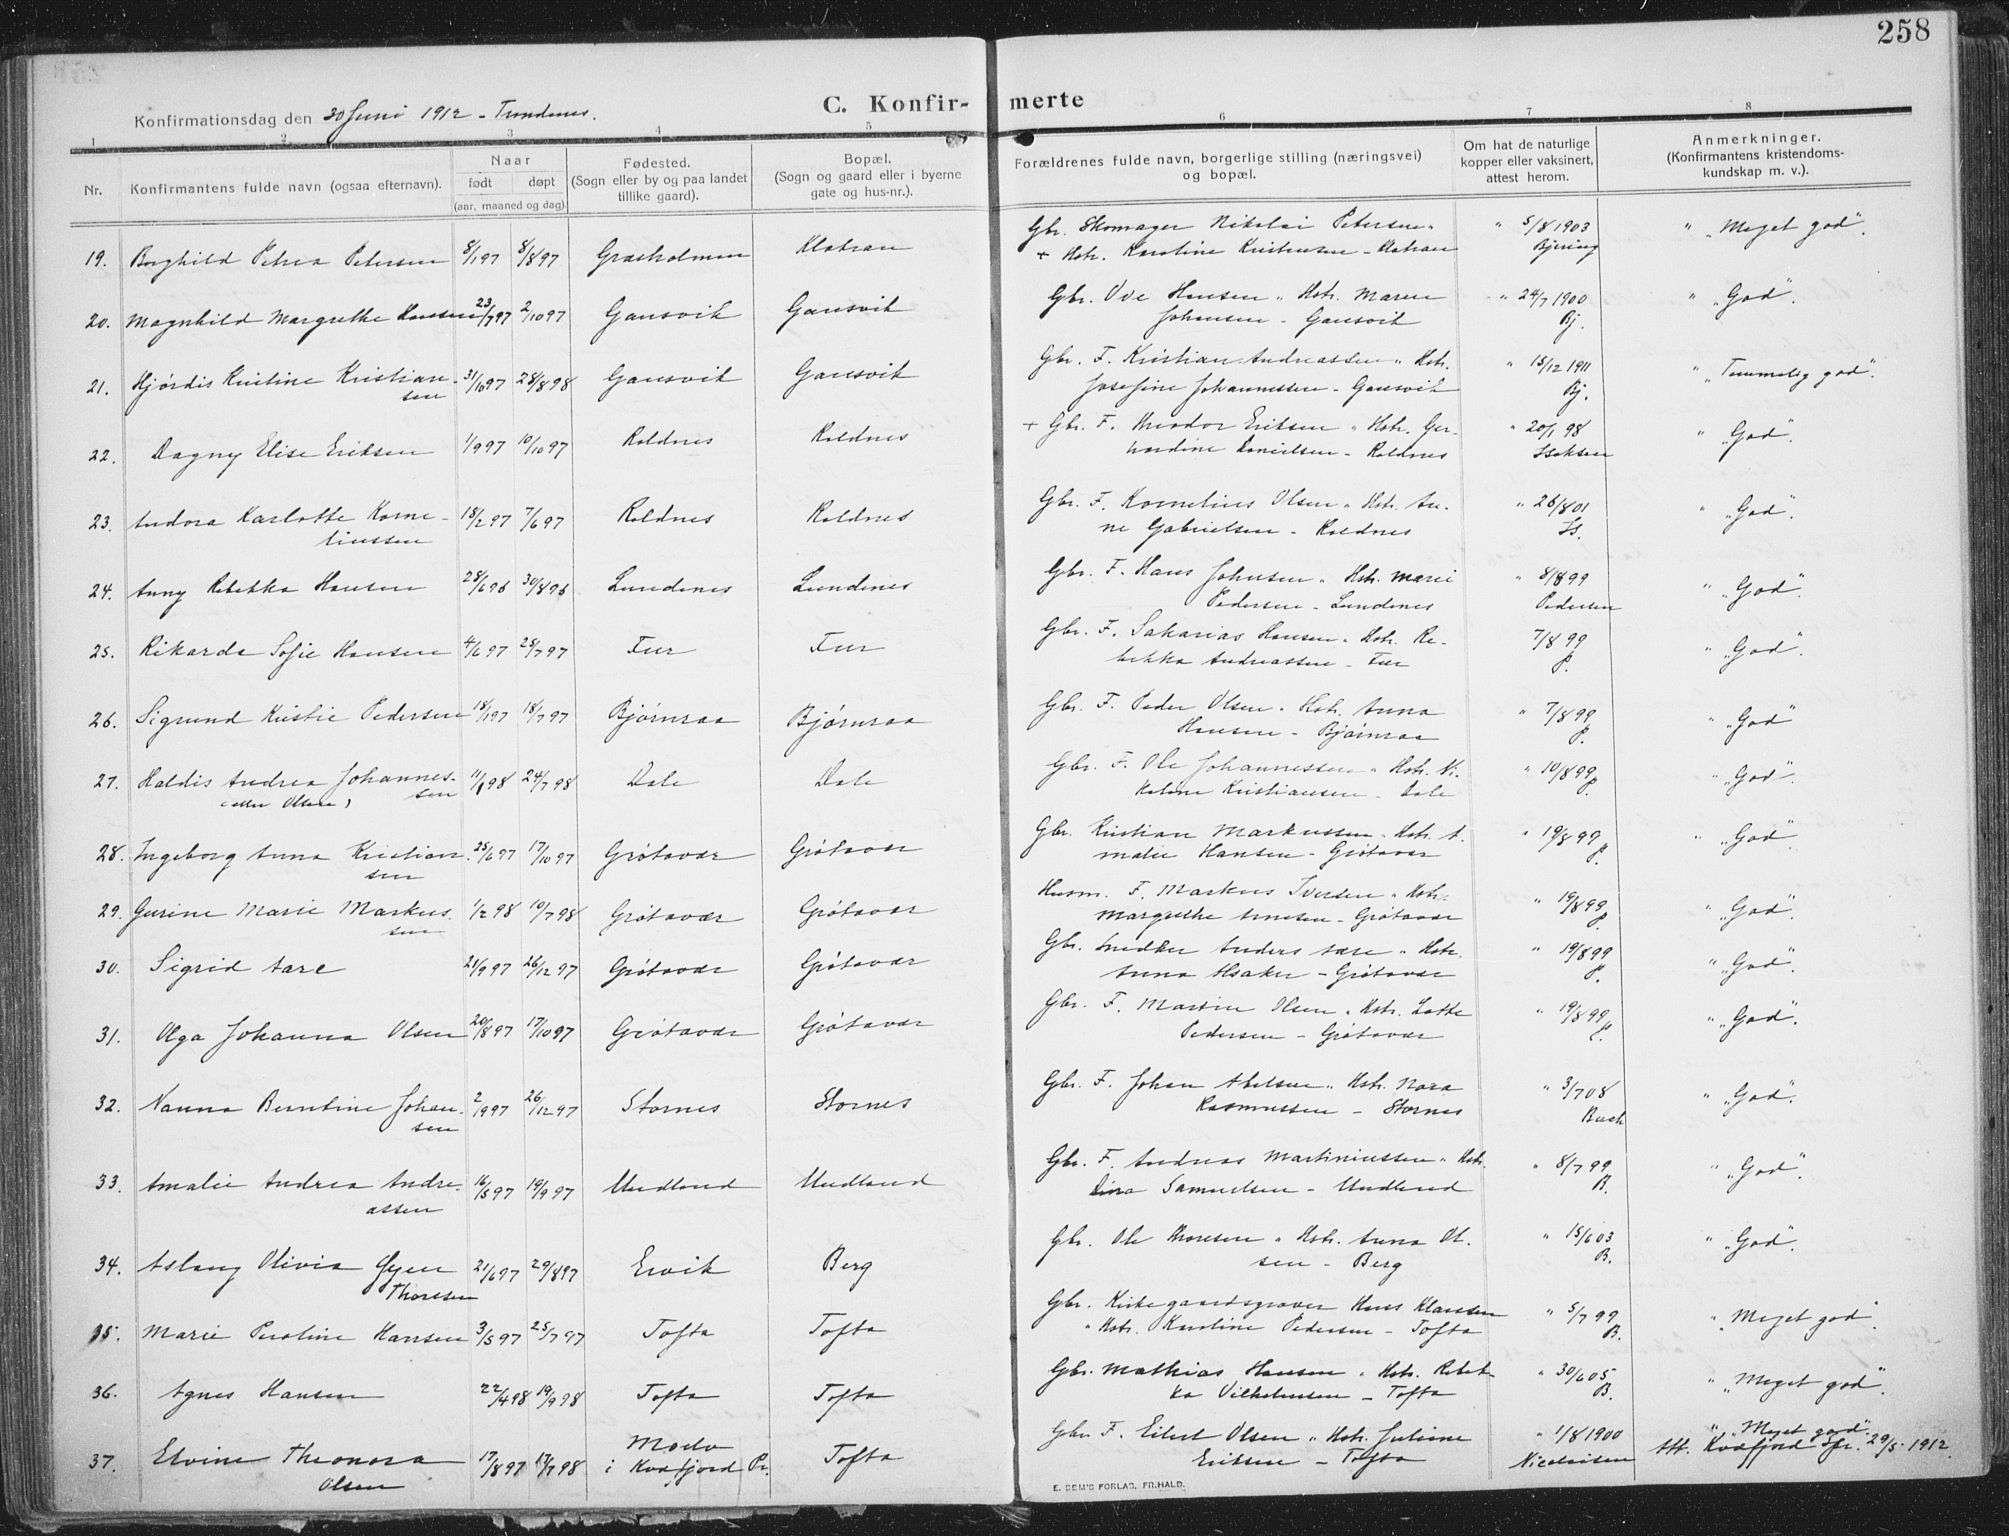 258
C. Konfir- merte
Konfirmationsdag den 30 Juni 1912 - Trondenes.
1 2 3 4 5 6 7 8
Nr. Konfirmantens fulde navn (ogsaa efternavn). Naar født døpt (aar, maaned og dag). Fødested. (Sogn eller by og paa landet tillike gaard). Bopæl. (Sogn og gaard eller i byerne gate og hus-nr.). Forældrenes fulde navn, borgerlige stilling (næringsvei) og bopæl. Om hat de naturlige kopper eller vaksinert, attest herom. Anmerkninger. (Konfirmantens kristendoms-kundskap m. v.).
19. Borghild Petrea Petersen 8/1 97 8/8 97 Grasholmen Klatran Gbr. Skomager Nikolai Petersen "
+ Hstr. Karoline Kristensen - Klatran " 5/8 1903 Bjering " "Meget god".
20. Magnhild Margrethe Hansen 23/7 97 2/10 97 Gausvik Gausvik Gbr. Ove Hansen " Hstr. Maren
Johansen - Gausvik " 24/7 1900 Bj. " "God".
21. Hjørdis Kristine Kristian-
sen 31/10 97 28/8 98 Gausvik Gausvik Gbr. F. Kristian Andreassen " Hstr.
Josefine Johannessen - Gausvik " 15/12 1911 Bj. " "Temmelig god".
22. Dagny Elise Eriksen 1/9 97 10/10 97 Roldnes Roldnes + Gbr. F. Theodor Eriksen " Hstr. Ger-
hardine Danielsen - Roldnes " 20/1 98 Isaksen " "God".
23. Andora Karlotte Korne-
liussen 18/2 97 7/6 97 Roldnes Roldnes Gbr. F. Kornelius Olsen " Hstr. An-
ne Gabrielsen - Roldnes " 26/8 01 Is. " "God".
24. Anny Rebekka Hansen 28/6 96 30/8 96 Lundenes Lundenes Gbr. F. Hans Johnsen " Hstr. Marie
Pedersen - Lundenes " 8/8 99 Pedersen " "God".
25. Rikarda Sofie Hansen 4/6 97 25/7 97 Fur Fur Gbr. F. Sakarias Hansen " Hstr. Re-
bekka Andreassen - Fur 7/8 99 P. " "God".
26. Sigrund Kristie Pedersen 18/1 97 18/7 97 Bjørnraa Bjørnraa Gbr. F. Peder Olsen " Hstr. Anna
Hansen - Bjørnraa " 7/8 99 P. " "God"
27. Haldis Andrea Johannes-
sen (eller Olsen) 11/1 98 24/7 98 Dale Dale Gbr. F. Ole Johannessen " Hstr. Ni-
koline Kristiansen - Dale " 10/8 99 P. " "God".
28. Ingeborg Anna Kristian-
sen 25/6 97 17/10 97 Grøtavær Grøtavær Gbr. Kristian Markussen " Hstr. A-
malie Hansen - Grøtavær " 19/8 99 P. " "God".
29. Gurine Marie Markus-
sen 1/2 98 10/7 98 Grøtavær Grøtavær Husm. F. Markus Iversen " Hstr.
Margrethe Arnesen - Grøtavær " 19/8 99 P. " "God".
30. Sigrid Aare 21/9 97 26/12 97 Grøtavær Grøtavær Gbr. Snedker Anders Aare " Hstr.
Anna Hsaker - Grøtavær " 19/8 99 P. " "God".
31. Olga Johanna Olsen 20/8 97 17/10 97 Grøtavær Grøtavær Gbr. F. Martin Olsen " Hstr. Lotte
Pedersen - Grøtavær " 19/8 99 P. " "God".
32. Nanna Berntine Johan-
sen 2/9 97 26/12 97 Stornes Stornes Gbr. F. Johan Abelsen " Hstr. Nora
Rasmussen - Stornes " 3/7 08 Buch " "God".
33. Amalie Andrea Andre-
assen 16/5 97 19/9 97 Undland Undland Gbr. F. Andreas Martiniussen " Hstr.
Lina Samuelsen - Undland " 8/7 99 B. " "God".
34. Aslaug Olivia Gyen
Thoresen 21/6 97 29/8 97 Ervik Berg Gbr. Ole Thoresen " Hstr. Anna Ol-
sen - Berg " 15/6 03 B. " "God".
35. Marie Peroline Hansen 3/5 97 25/7 97 Tofta Tofta Gbr. Kirkegaardsgraver Hans Klausen
" Hstr. Karoline Pedersen - Tofta " 5/7 99 B. " "Meget god".
36. Agnes Hansen 22/4 98 19/9 98 Tofta Tofta Gbr. Mathias Hansen " Hstr. Rebek-
ka Vilhelmsen - Tofta " 30/6 05 B. " "Meget god".
37. Elvine Theonora
Olsen 17/8 97 17/7 98 Moelv i Kvæfjord Pr. Tofta Gbr. F. Eilert Olsen " Hstr. Juliane
Eriksen - Tofta " 1/8 1900 Nicolaisen " "Meget god"
Att. Kvæfjord Spr. 29/5 - 1912.
E. SEM'S FORLAG, FR.HALD.